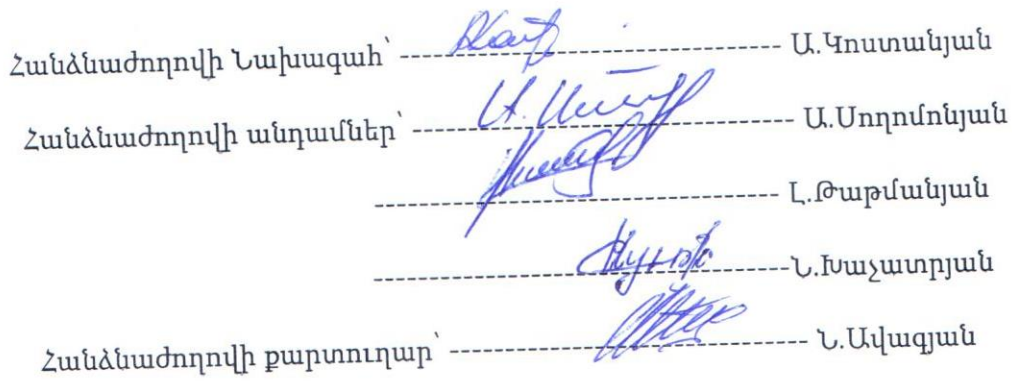 Հանձնաժողովի Նախագահ՝ ---------------------------------- Ա.Կոստանյան
Հանձնաժողովի անդամներ՝ ---------------------------------- Ա.Սողոմոնյան
----------------------------------- Լ.Թաթմանյան
-----------------------------------Ն.Խաչատրյան
Հանձնաժողովի քարտուղար՝ ------------------------------- Ն.Ավագյան